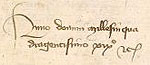 Anno domini millesimo qua
dragentesimo xxixº etc